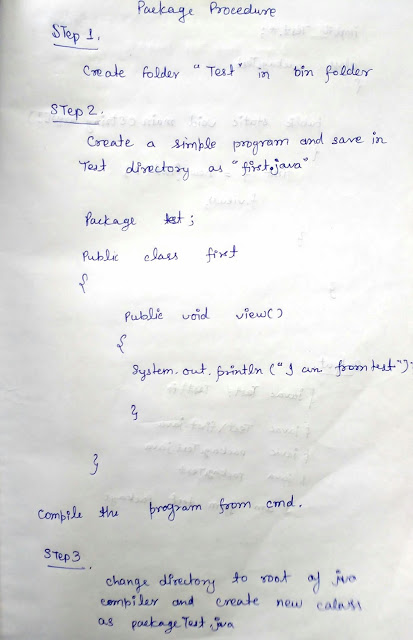 Package Procedure
STep 1.
Create folder "Test" in bin folder
STep 2.
Create a simple program and save in
Test directory as "first.java"
Package test;
Public class first
{
Public void view()
{
System.out.println ("I am from test");
}
}
Compile the program from cmd.
STep 3
change directory to root of java
compiler and create new calass
as packageTest.java